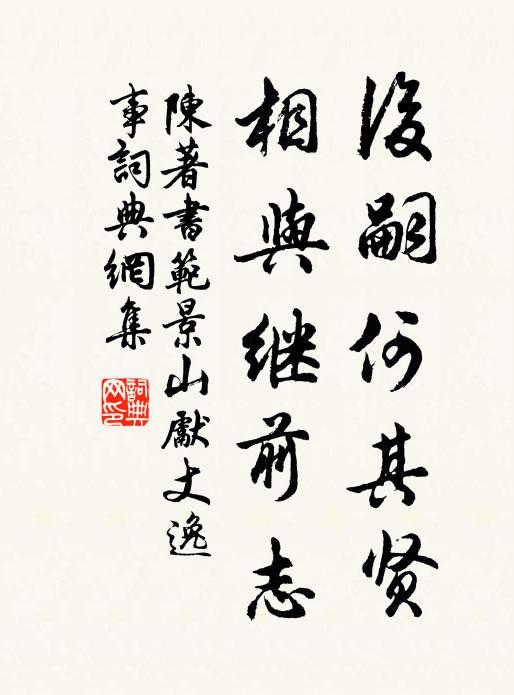 後嗣何其贤
相與继前志
陳著書範景山獻丈逸
事詞典網集
詞典
网印